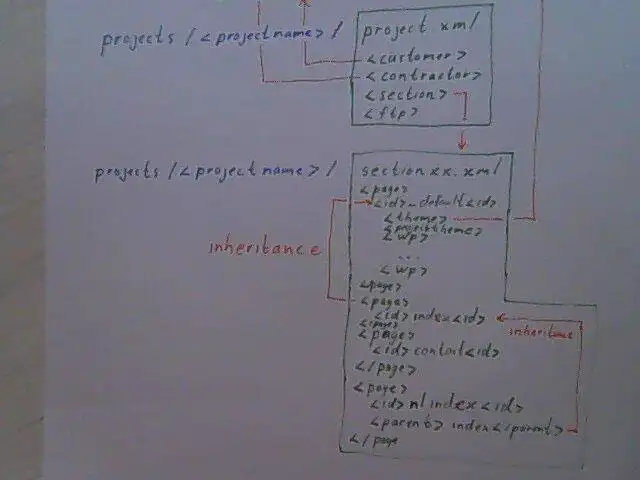 projects / <projectname> /
project xml
<customer>
<contractor>
<section>
<ftp>
projects / <projectname> /
section xx. xml
<page>
<id>_default<id>
<theme>
<projecttheme>
<wp>
inheritance
...
<wp>
<page>
<page>
<id>index<id>
inheritance
</page>
<page>
<id>contact<id>
</page>
<page>
<id>nlindex<id>
<parent>index</parent>
</page